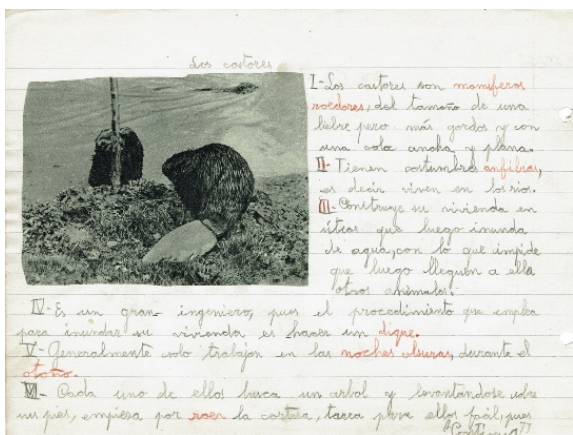 Los castores
I-Los castores son mamíferos
roedores, del tamaño de una
liebre pero más gordos y con
una cola ancha y plana.
II-Tienen costumbres anfibias,
es decir viven en los rios.
III-Construye su vivienda en
sitios que luego inunda
de agua, con lo que impide
que luego lleguen a ella
otros animales.
IV-Es un gran ingeniero, pues el procedimiento que emplea
para inundar su vivienda es hacer un dique.
V-Generalmente solo trabajan en las noches obscuras, durante el
otoño.
VI-Cada uno de ellos busca un arbol y levantándose sobre
sus pies, empieza por roer la corteza, tarea para ellos fácil, pues